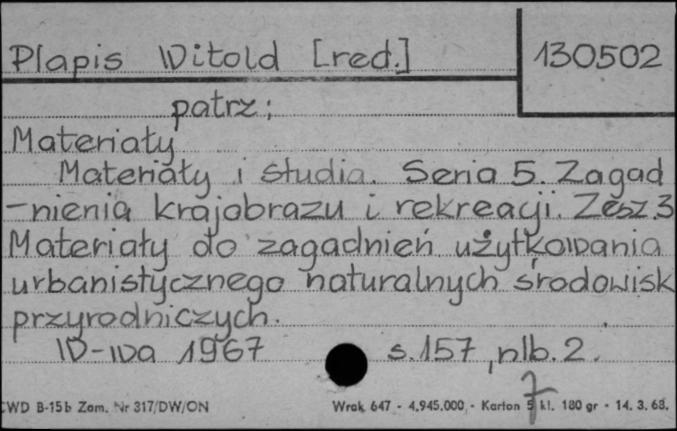 Plapis Witold [red.] 130502
patrz:
Materiały
Materiały i studia. Seria 5. Zagad
-nienia krajobrazu i rekreacji. Zesz. 3
Materiały do zagadnień użytkowania
urbanistycznego naturalnych środowisk
przyrodniczych.
W-wa 1967 s. 157, nlb. 2.
7
CWD B-15b Zam. Nr 317/DW/ON Wrak. 647 - 4.945.000 - Karton 5 kl. 180 gr - 14. 3. 68.